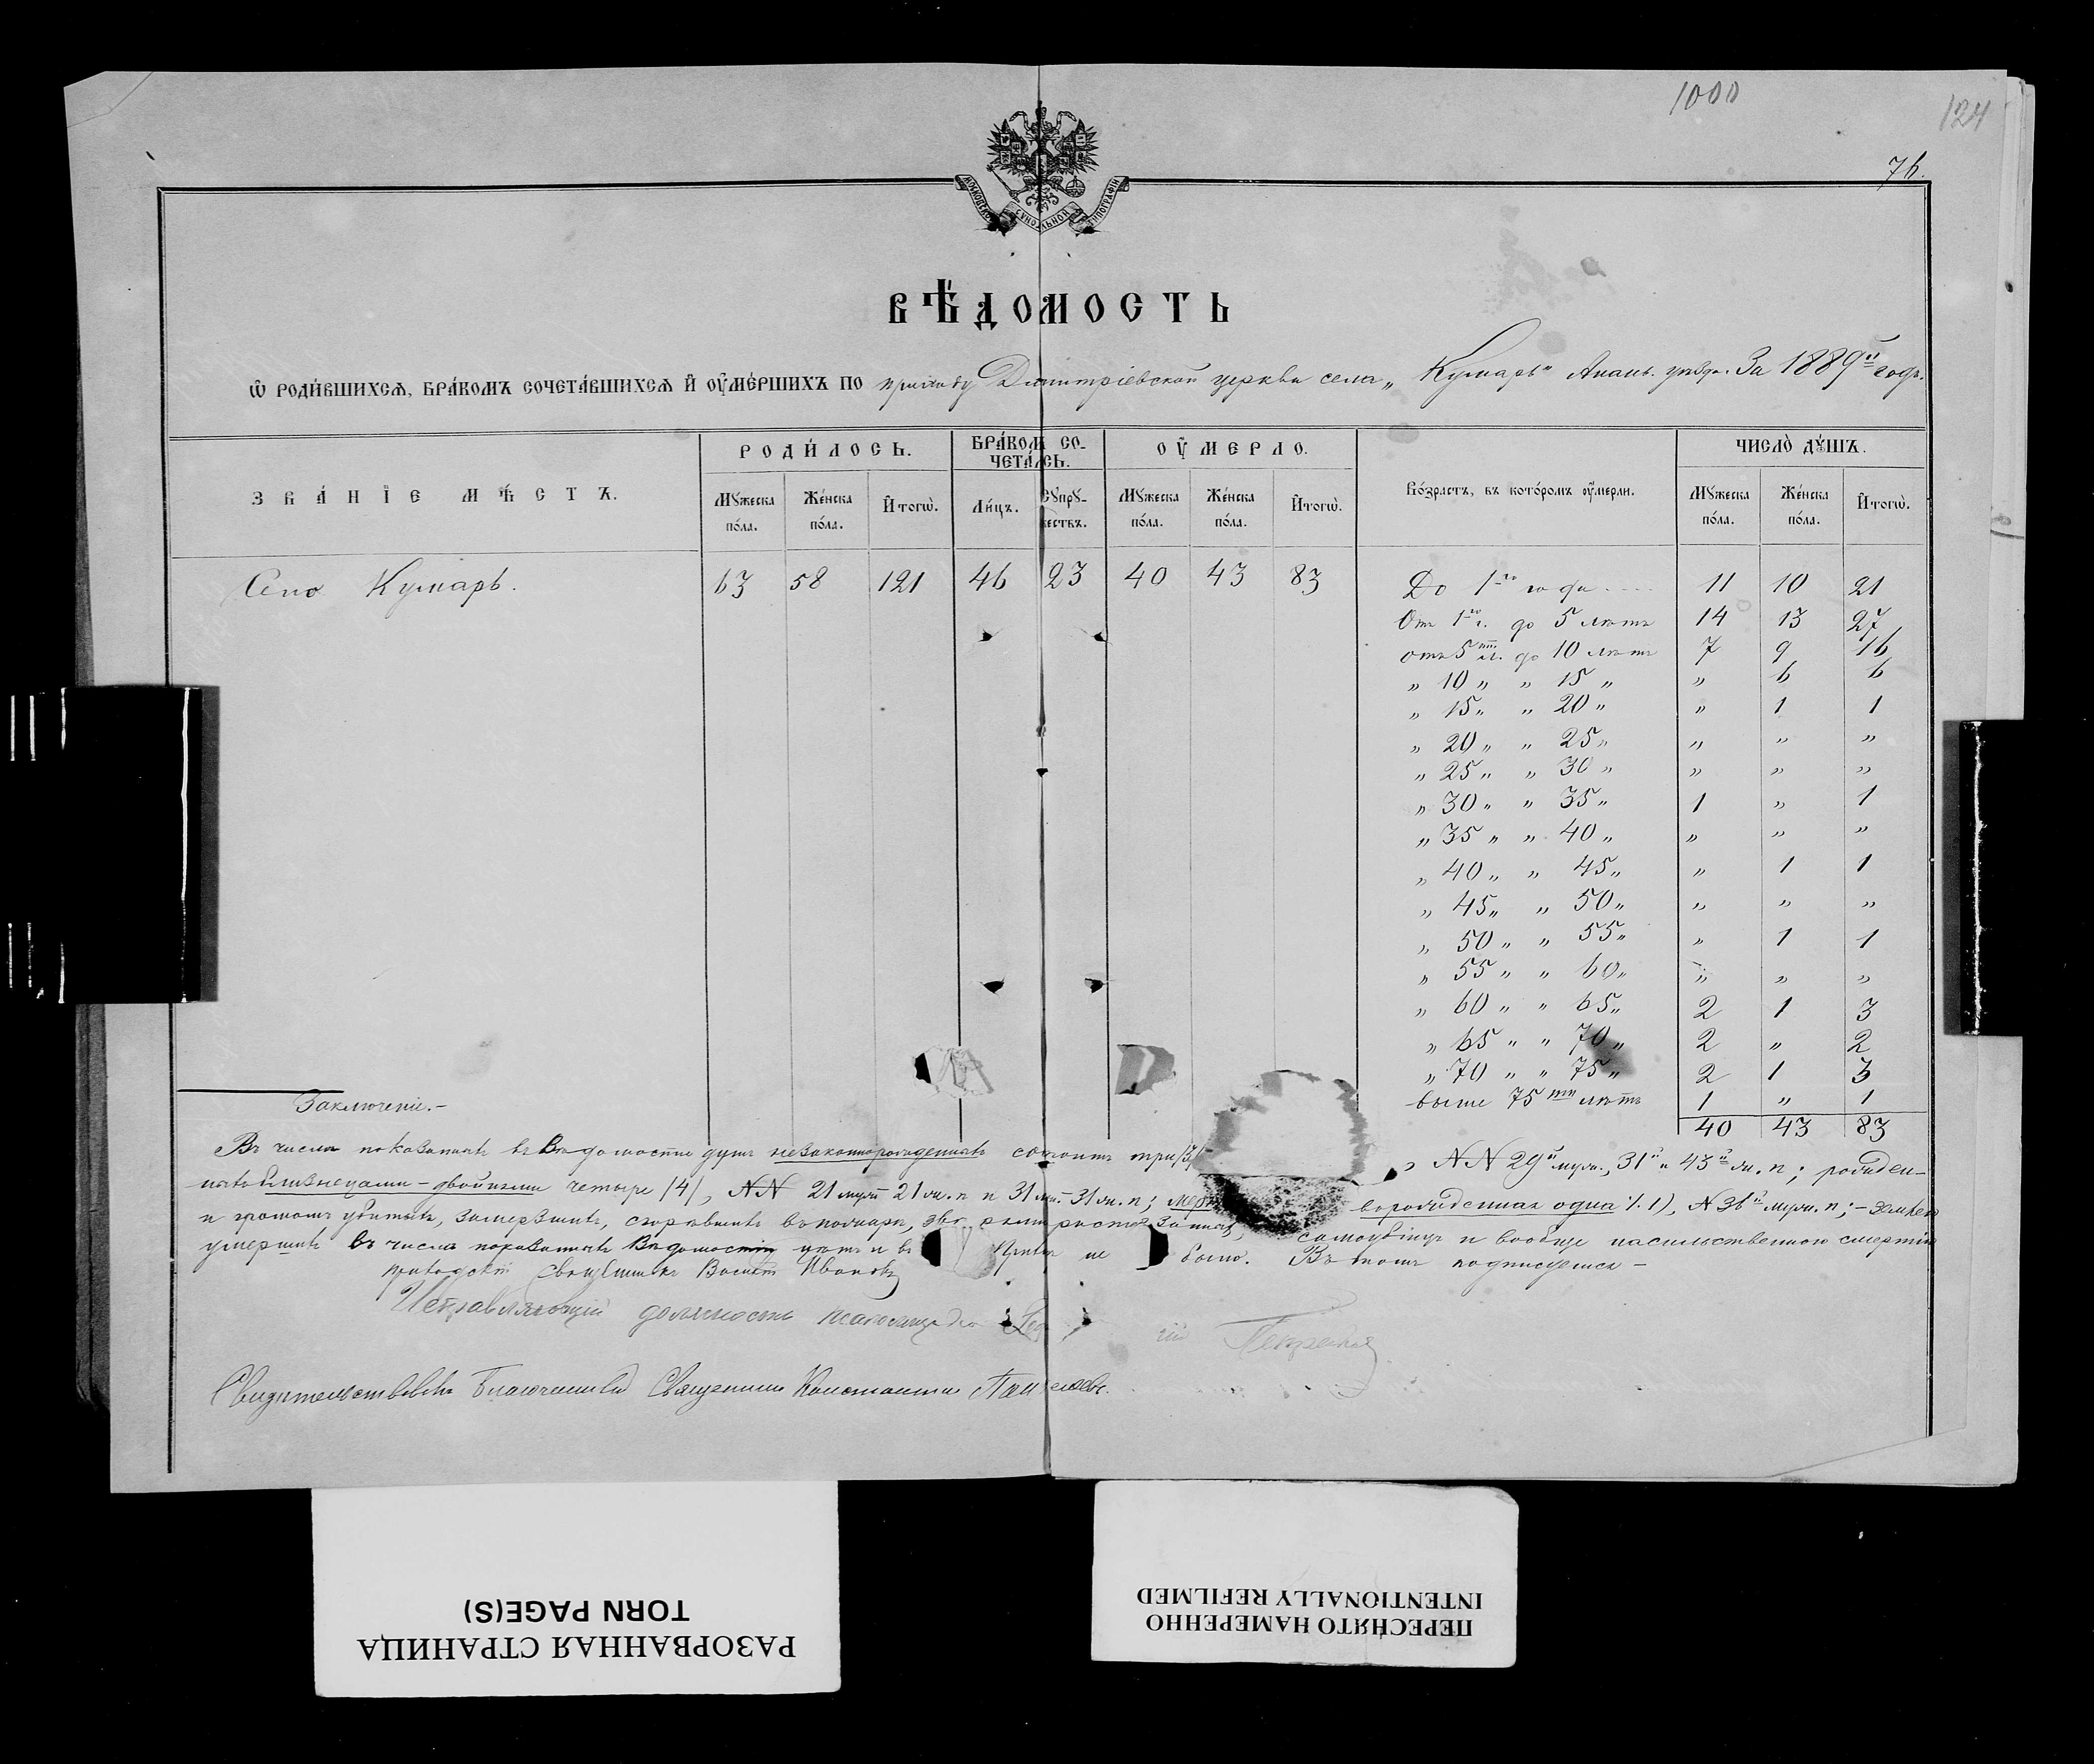 1000
124
76.
МОСКОВСКОЙ СѴНОДАЛЬНОЙ ТИПОГРАФІИ
ВѢДОМОСТЬ
Ѡ РОДИ́ВШИХСЯ, БРА́КОМЪ СОЧЕТА́ВШИХСЯ И҆ ОУ҆МЕ́РШИХЪ ПО приходу Димитріевской церкви села „Кумарь“ Анань. уѣзда. За 1889й годъ.
ЗВА́НІЕ МѢ́СТЪ. РОДИ́ЛОСЬ. БРА́КОМ СОЧЕТА́ЛСЬ. ОУ҆МЕРЛО. Во́зрастъ, въ кото́ромъ оу҆мерли. ЧИСЛО̀ ДꙊШЪ.
Мꙋжеска по́ла. Же́нска по́ла. И҆тогѡ̀. Ли́цъ. Сꙋпрꙋжествъ. Мꙋжеска по́ла. Же́нска по́ла. И҆тогѡ̀. Мꙋжеска по́ла. Же́нска по́ла. И҆тогѡ̀.
Село Кумарь. 63 58 121 46 23 40 43 83 До 1го года .... 11 10 21
Отъ 1го г. до 5 лѣтъ 14 13 27
отъ 5ти л. до 10 лѣтъ 7 9 16
„ 10 „ „ 15 „ „ 6 6
„ 15 „ „ 20 „ „ 1 1
„ 20 „ „ 25 „ „ „ „
„ 25 „ „ 30 „ „ „ „
„ 30 „ „ 35 „ 1 „ 1
„ 35 „ „ 40 „ „ „ „
„ 40 „ „ 45 „ „ 1 1
„ 45 „ „ 50 „ „ „ „
„ 50 „ „ 55 „ „ 1 1
„ 55 „ „ 60 „ „ „ „
„ 60 „ „ 65 „ 2 1 3
„ 65 „ „ 70 „ 2 „ 2
„ 70 „ „ 75 „ 2 1 3
выше 75ти лѣтъ 1 „ 1
40 43 83
Заключеніе.—
Въ числѣ показанныхъ въ Вѣдомости душъ незаконнорожденныхъ состоитъ три /3/ NN 29й муж., 31й и 43й ж. п; рожден-
ныхъ близнецами – двойнями четыре /4/, NN 21 муж – 21 ж. п и 31 м. – 31 ж. п; мер ворожденная одна /.1), N 36й муж. п; –
и громомъ убитыхъ, замерзшихъ, сгорѣвшихъ въ пожарѣ, самоубійцъ и вообще насильственною смертію
умершихъ въ числѣ показанныхъ Вѣдомости нѣтъ и въ не было. Въ томъ подписуемся –
Приходскій Священникъ Ивановъ
Исправляющій должность псаломщика
Свидѣтельствовалъ Благочинный Священникъ Константинъ
РАЗОРВАННАЯ СТРАНИЦА
TORN PAGE(S)
ПЕРЕСНЯТО НАМЕРЕННО
INTENTIONALLY REFILMED